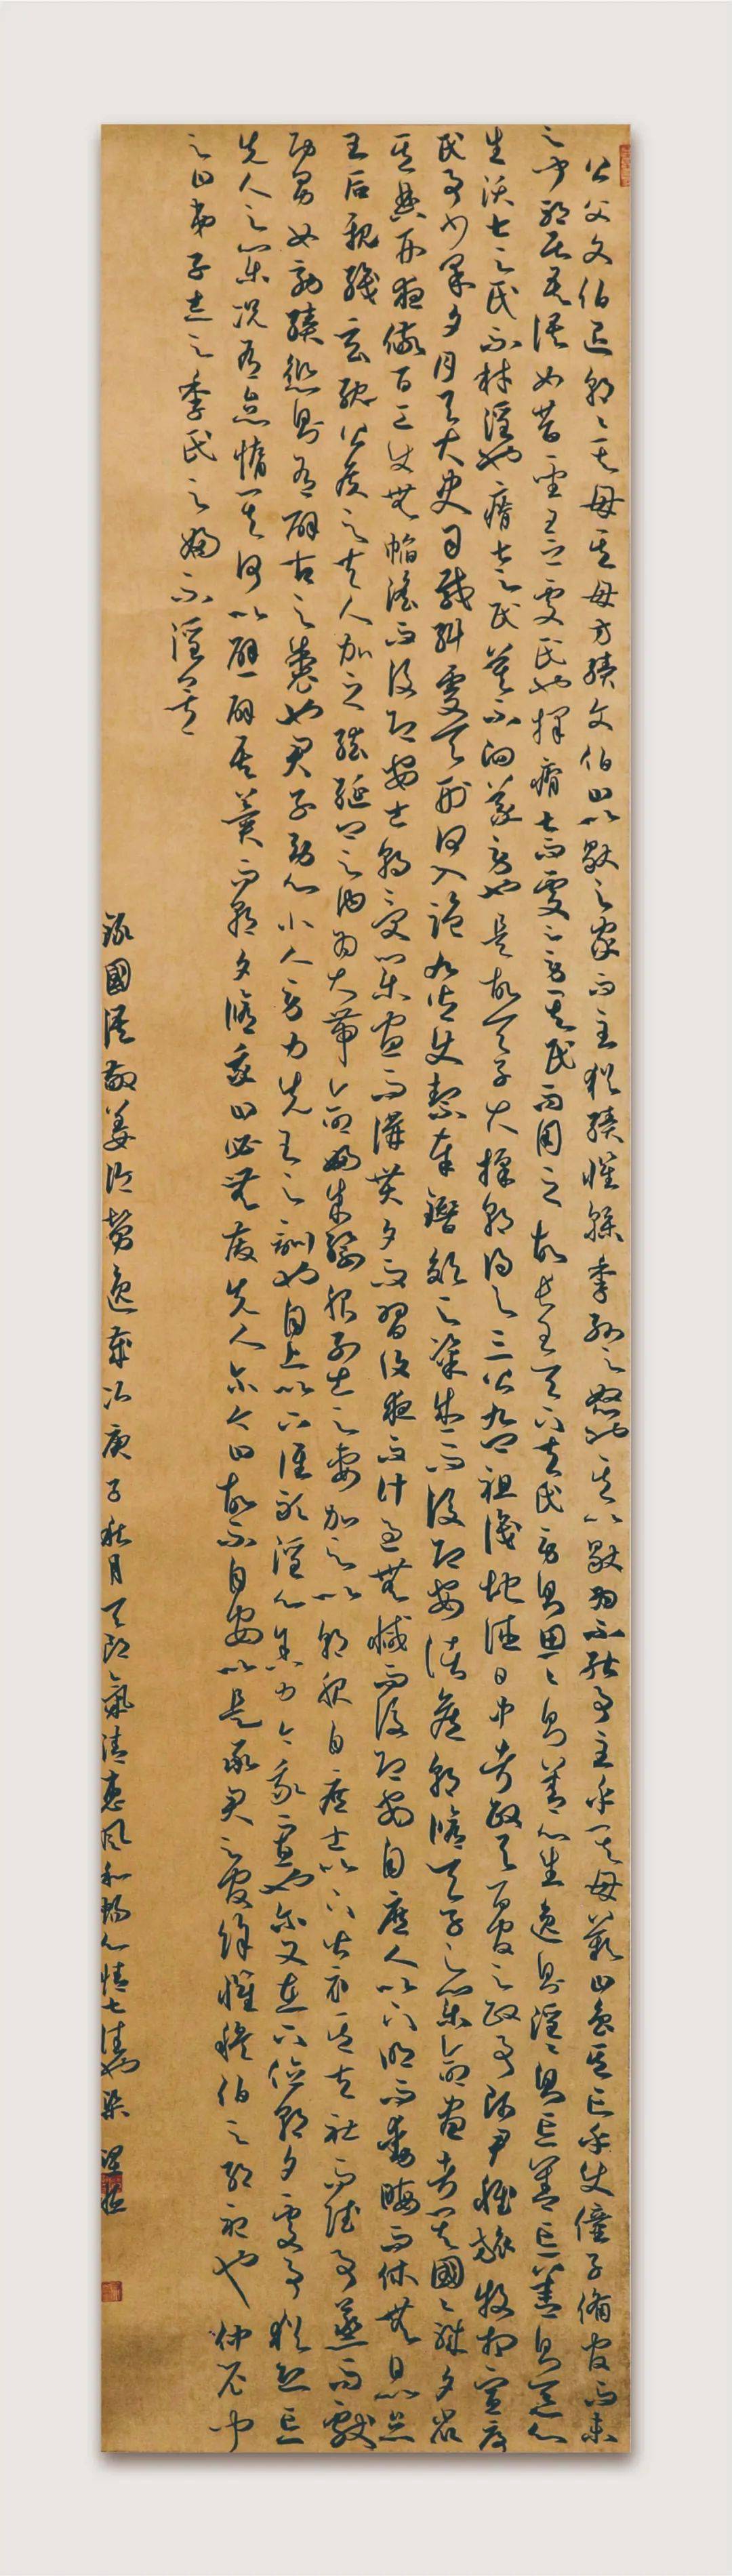 公父文伯退朝朝其母其母方績文伯曰以歜之家而主猶績懼季孫之怒也其以歜為不能事主乎其母歎曰魯其亡乎使僮子備官而未
之聞耶居吾語女昔聖王之處民也擇瘠土而處之勞其民而用之故長王天下夫民勞則思思則善心生逸則淫淫則忘善忘善則惡心
生沃土之民不材淫也瘠土之民莫不向義勞也是故天子大採朝日與三公九卿祖識地德日中考政與百官之政事師尹維旅牧相宣序
民事少采夕月與大史司載糾虔天刑日入監九御使潔奉禘郊之粢盛而後即安諸侯朝修天子之業命晝考其國國職夕省
其典刑夜儆百工使無慆淫而後即安士朝受業晝而講貫夕而習復夜而計過無憾而後即安自庶人以下明而動晦而休無日以怠
王后親織玄紞公侯之夫人加之紘綖卿之內為大帶命婦成祭服列士之妻加之以朝服自庶士以下皆衣其夫社而賦事蒸而獻
功男女效績愆則有辟古之制也君子勞心小人勞力先王之訓也自上以下誰敢淫心舍力今我寡也爾又在下位朝夕處事猶恐忘
先人之業況有怠惰其何以避辟吾冀而朝夕修我曰必無廢先人爾今曰胡不自安以是承君之官余懼穆伯之絕祀也仲尼聞
之曰弟子志之季氏之婦不淫矣
錄國語敬姜論勞逸歲次庚子秋月天朗氣清惠風和暢心情也